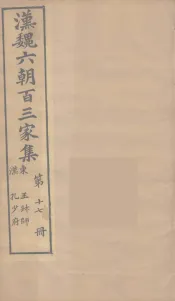 漢魏六朝百三家集
東漢
王叔師
孔少府
第十七冊